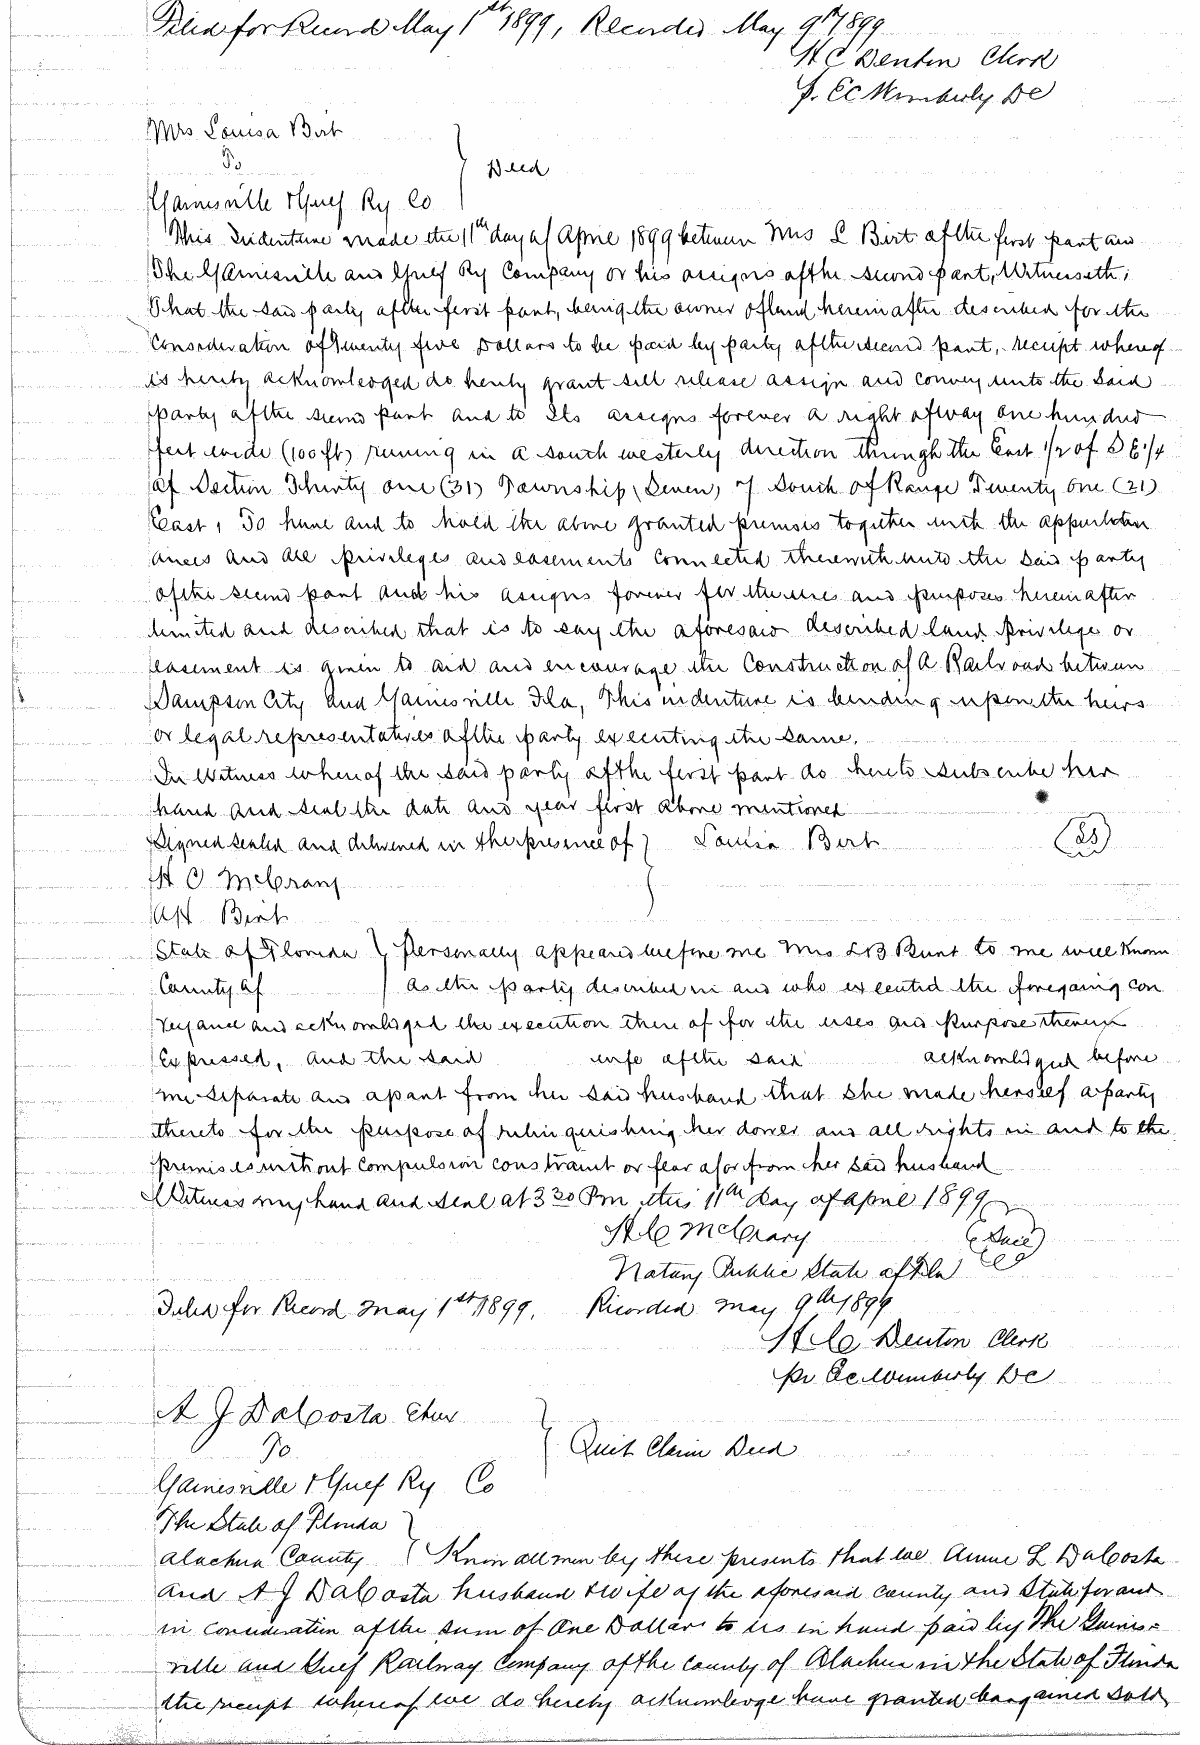 Filed for Record May 1st 1899, Recorded May 9th 1899
H C Denton Clerk
p. EC Wimberly DC
Mrs Louisa Birt
To
Deed
Gainesville & Gulf Ry Co
This Indenture made the 11th day of April 1899 between Mrs L Birt of the first part and
The Gainesville and Gulf Ry Company or his assigns of the second part, Witnesseth;
That the said party of the first part, being the owner of land hereinafter described for the
consideration of Twenty five Dollars to be paid by party of the second part, receipt whereof
is hereby acknowledged do hereby grant sell release assign and convey unto the said
party of the second part and to Its assigns forever a right of way one hundred
feet wide (100 ft) running in a south westerly direction through the East 1/2 of S E 1/4
of Section Thirty one (31) Township (Seven) 7 South of Range Twenty one (21)
East, To have and to hold the above granted premises together with the appurten
ances and all privileges and easements connected therewith unto the said party
of the second part and his assigns forever for the uses and purposes hereinafter
limited and described that is to say the aforesaid described land privilege or
easement is given to aid and encourage the Construction of a Railroad between
Sampson City and Gainesville Fla, This indenture is binding upon the heirs
or legal representatives of the party executing the same.
In Witness whereof the said party of the first part do hereto subscribe her
hand and seal the date and year first above mentioned
Signed sealed and delivered in the presence of Louisa Birt (LS)
H C McCrary
AH Birt
State of Florida Personally appeared before me Mrs LB Burt to me well known
County of as the party described in and who executed the foregoing con
veyance and acknowledged the execution there of for the uses and purpose therein
Expressed, and the said wife of the said acknowledged before
me separate and apart from her said husband that she made herself a party
thereto for the purpose of relinquishing her dower and all rights in and to the
premises without compulsion constraint or fear of or from her said husband
Witness my hand and seal at 3 30 Pm this 11th day of April 1899
H C McCrary (Seal)
Notary Public State of Fla
Filed for Record May 1st 1899, Recorded May 9th 1899
H C Denton Clerk
pr EC Wimberly DC
A J DaCosta Etux
To
Quit Claim Deed
Gainesville & Gulf Ry Co
The State of Florida
Alachua County Know all men by these presents that we Annie L DaCosta
and A J DaCosta husband & wife of the aforesaid county and State for and
in consideration of the sum of One Dollar to us in hand paid by The Gaines-
ville and Gulf Railway Company of the county of Alachua in the State of Florida
the receipt whereof we do hereby acknowledge have granted bargained sold